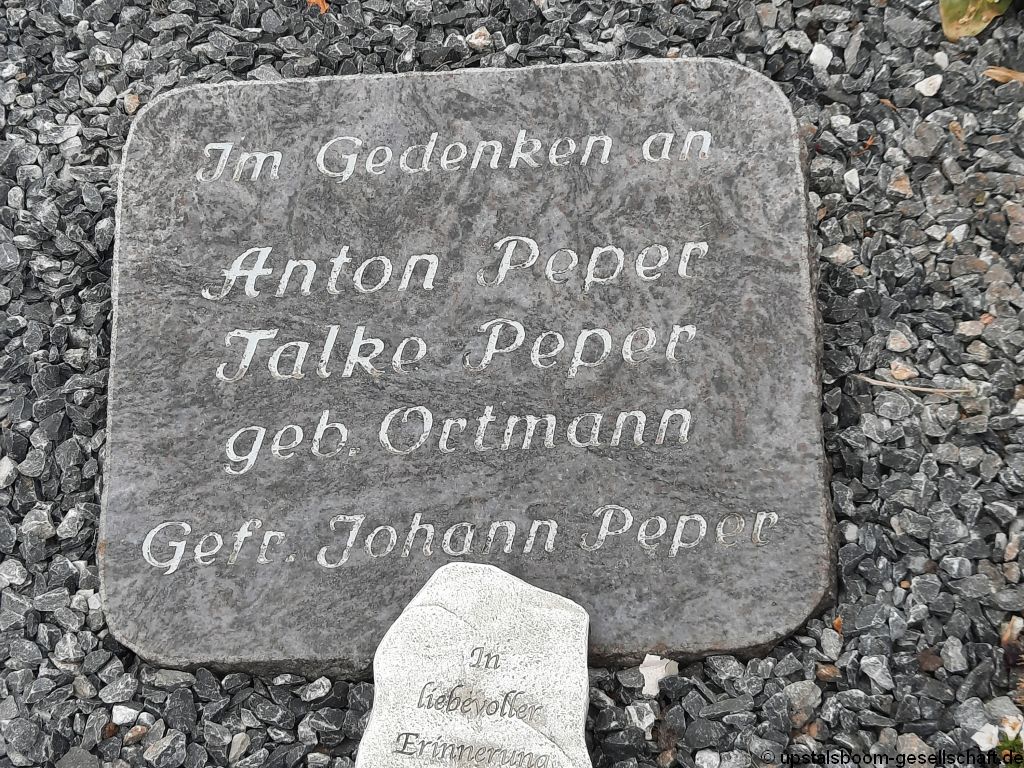 Im Gedenken an
Anton Peper
Talke Peper
geb. Ortmann
Gefr. Johann Peper
In
liebevoller
Erinnerung
© upstalsboom-gesellschaft.de